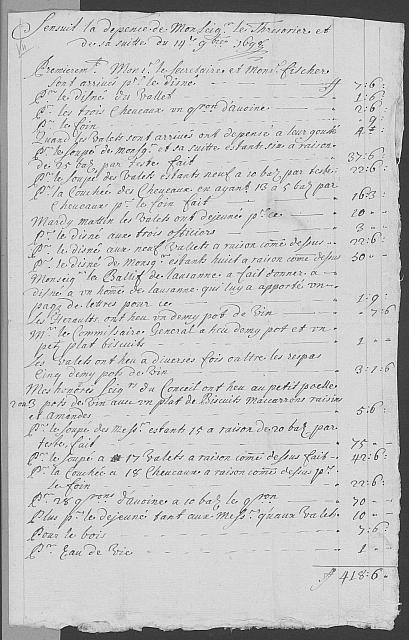 Sensuit la depence de Monseigr. le Thresorier et
de sa suitte du 14e. 9bre. 1698
Premieremt. Monsr. le Secretaire et Monsr. fischer
sont arrivés pr. le disné — ff 7:6:
Pr. le disné des Vallet — 1:6:
Pr. les trois Cheuaux vn qron d'auoine — 2:6:
Pr. le foin — 9
Quand les Valets sont arriués ont depensé a leur gouté 4:
Pr. le soupé de monsgr. et sa suitte estants six a raison
de 25 baz par teste fait — 37:6:
Pr. le soupé des Valets estants neuf a 10 baz par teste. 22:6:
Pr. la Couchée des Cheuaux en ayant 13 a 5 baz par
Cheuaux pr. le foin fait — 16:3:
Mardy mattin les Valets ont déjeuné pr. ce — 10
Pr. le disné aux trois officiers — 3
Pr. le disné aux neuf Vallets a raison come dessus — 22:6:
Pr. le disné de Monsgr. estants huit a raison come dessus 50
Monseigr. le Ballif de Lausanne a fait donner a
disné a vn home de lausanne qui luy a apporté vn
paq. de lettres pour ce — 1:9:
Les Herauts ont heu vn demy pot de vin — 7:6
Mr. le Commissaire General a heu demy pot et vn
petit plat biscuits — 1
Les Valets ont heu a diverses fois oultre les repas
Cinq demy pots de vin — 3:1:6
Mes honorés Seigrs. du Conceil ont heu au petit poelle
3 pots de vin auec vn plat de Biscuits Maccarrons raisins
et amandes — 5:6:
Pr. le soupé des Messrs. estants 15 a raison de 20 baz par
teste, fait — 75
Pr. le soupé a 17 Valets a raison come dessus fait 42:6:
Pr. la Couchée a 18 Cheuaux a raison come dessus pr.
le foin — 22:6:
Pr. 28 qrons d'auoine a 10 baz le qron — 70
Plus pr. le dejeuné tant aux Messrs. qu'aux Valets 10
Pour le bois — 7:6:
Pr. Eau de Vie — 1
ff 418:6